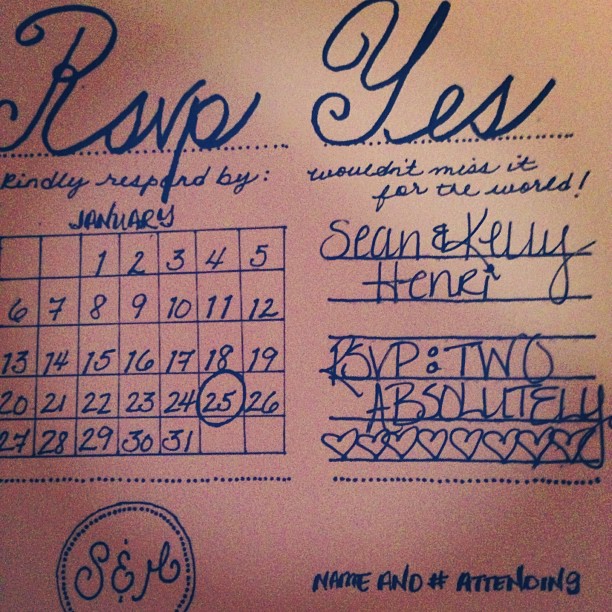 Rsvp
Kindly respond by:
JANUARY
1 2 3 4 5
6 7 8 9 10 11 12
13 14 15 16 17 18 19
20 21 22 23 24 25 26
27 28 29 30 31
S & M
Yes
wouldn't miss it
for the world!
Sean & Kelly
Henri
RSVP: TWO
ABSOLUTELY.
NAME AND # ATTENDING